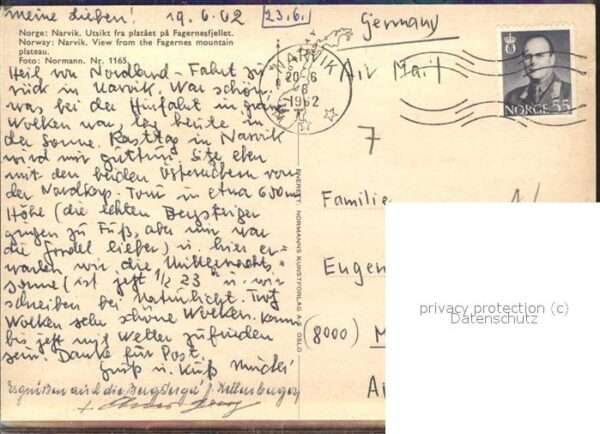 meine Lieben! 19.6.62 23.6.
Norge: Narvik. Utsikt fra platået på Fagernesfjellet.
Norway: Narvik. View from the Fagernes mountain
plateau.
Foto: Normann. Nr. 1165
Heil von Nordland-Fahrt zu-
rück in Narvik. War schön,
was bei der Hinfahrt in grauen
Wolken war, lag heute in
der Sonne. Rasttag in Narvik
wird mir guttun, sitze eben
mit den beiden Österreichern von
der Nordkap-Tour in etwa 650 m
Höhe (die echten Bergsteiger
gingen zu Fuß, aber mir war
die Gondel lieber) u. hier er-
warten wir die Mitternachts-
sonne (ist jetzt 1/2 23h u. wir
schreiben bei Naturlicht. Trotz
Wolken sehr schöne Wolken. Kann
bis jetzt mit Wetter zufrieden
sein. Danke für Post.
Gruß u. Kuß
Es grüßen auch die Bergsteiger
ENERETT: NORMANNS KUNSTFORLAG A/S OSLO
Germany
Air Mail
NARVIK
20-6
8
1962
NORGE 55
7
Familie
Eugen
(8000) M
privacy protection (c)
Datenschutz